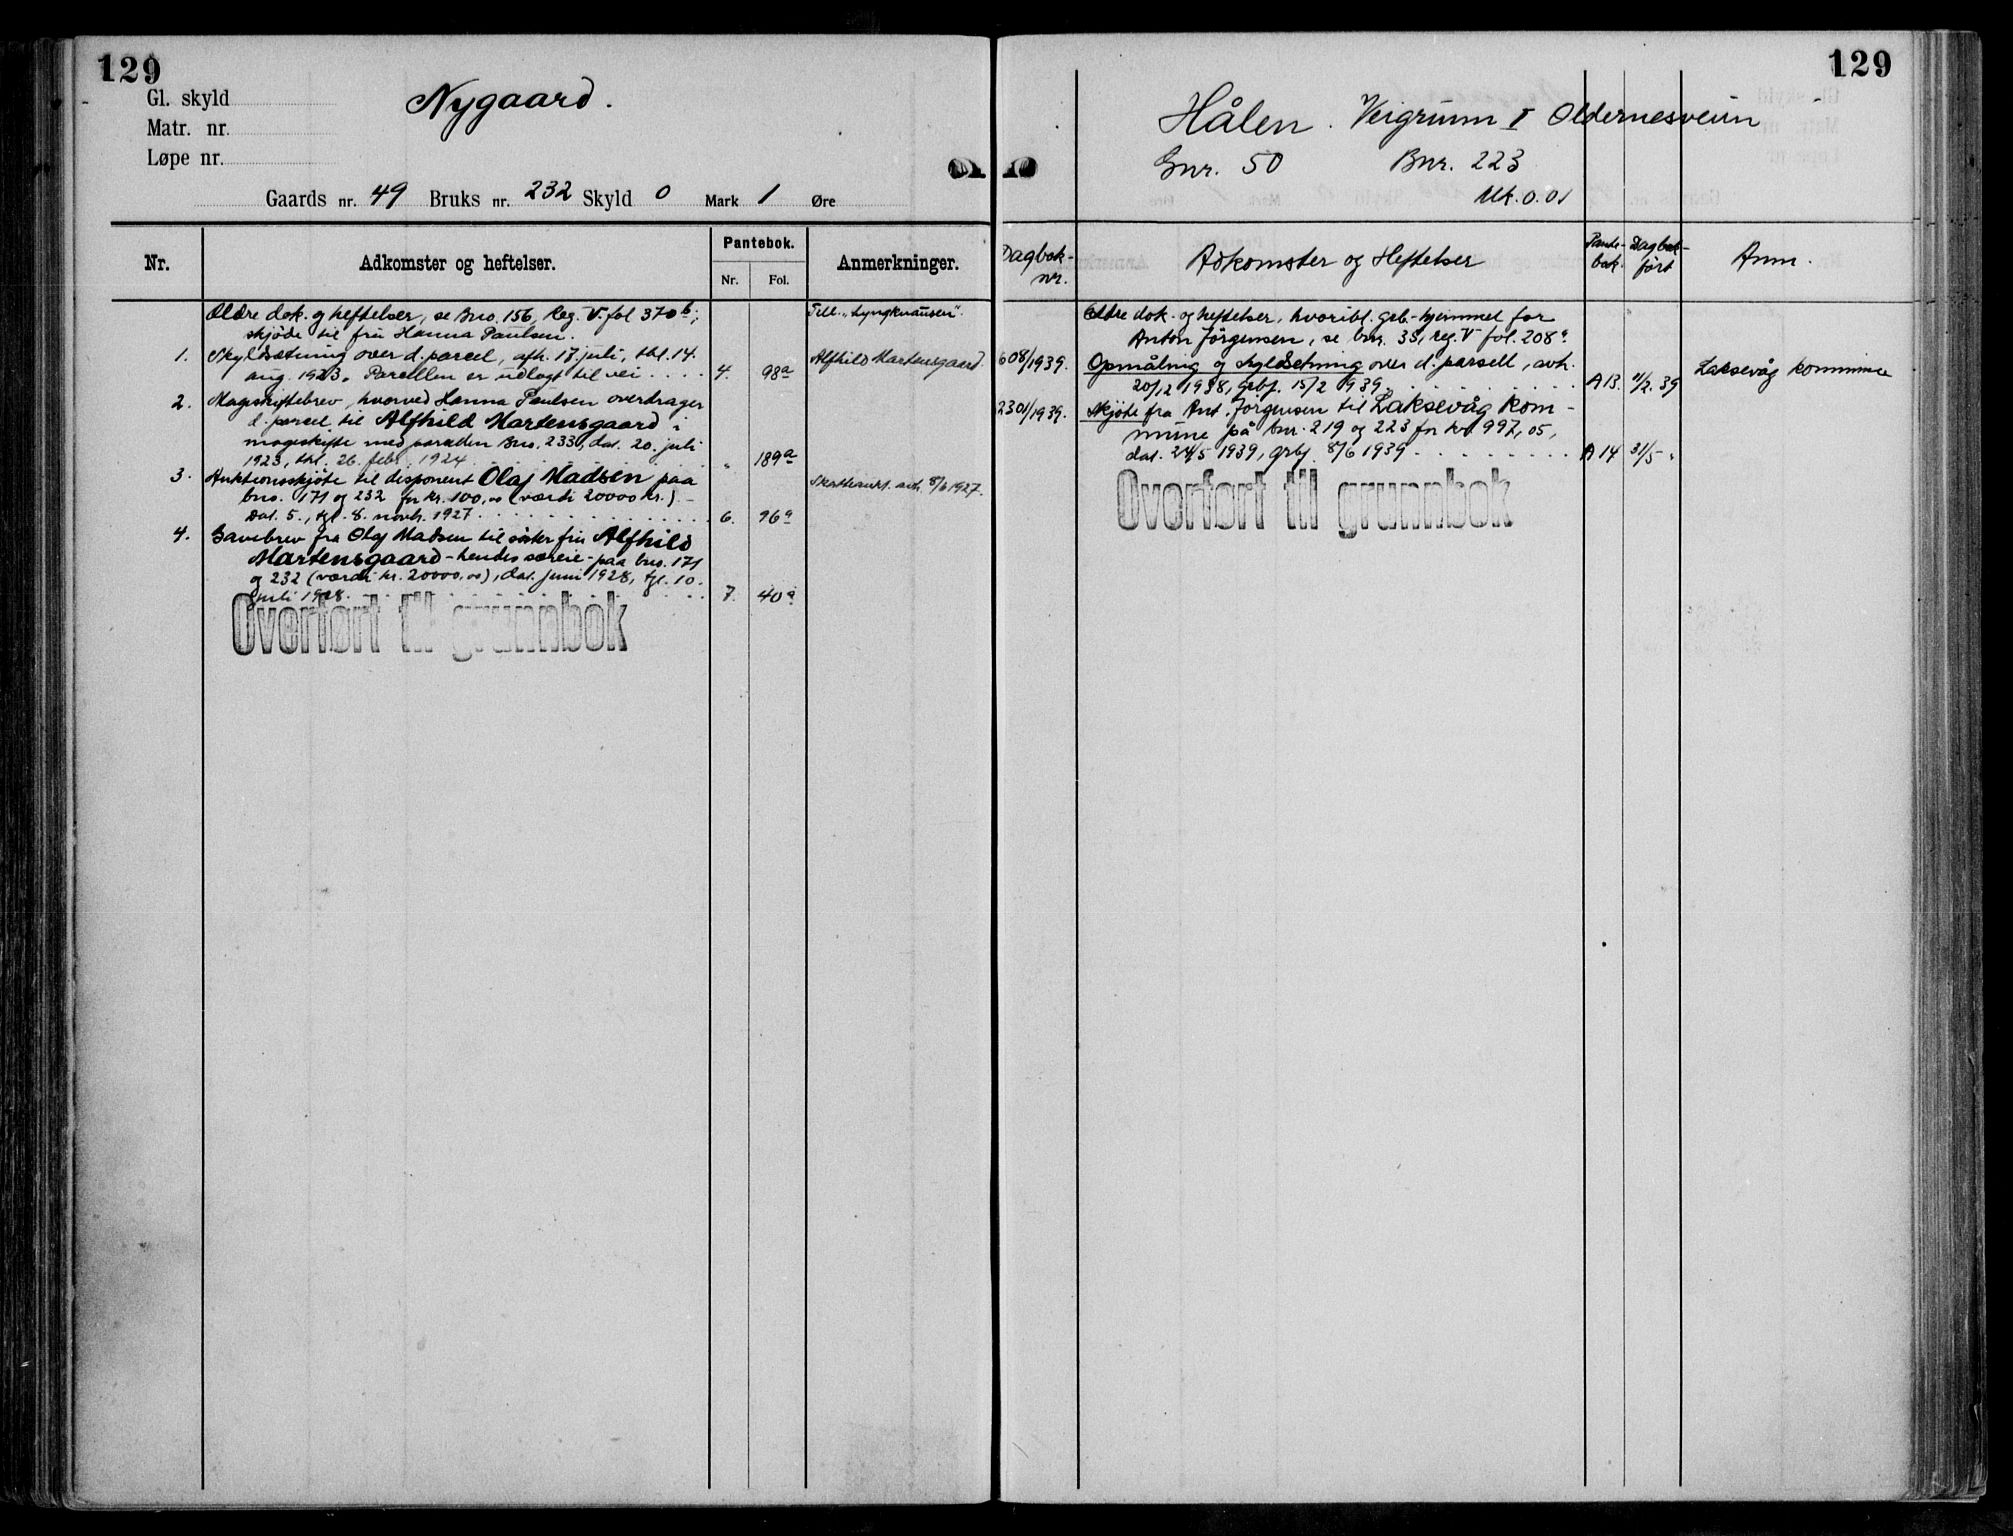 129
Gl. skyld
Nygaard.
Matr. nr.
Løpe nr.
Gaards nr. 49 Bruks nr. 232 Skyld 0 Mark 1 Øre
Nr.
Adkomster og heftelser.
Pantebok.
Nr. Fol.
Anmerkninger.
Ældre dok. og heftelser, se Bno. 156, Reg. V. fol 370 b;
skjøde til fru Hanna Paulsen.
Till. "Lyngknausen".
1. Skyldsætning over d. parcel, afh. 17. juli, tbl. 14.
aug. 1923. Parcellen er udlagt til vei . . . . 4. 98a
Alfhild Martensgaard.
2. Mageskiftebrev, hvorved Hanna Paulsen overdrager
d. parcel til Alfhild Martensgaard i
mageskifte med parcellen Bno. 233, dat. 20. juli
1923, tbl. 26. febr. 1924 . . . . " 189a
3. Auktionsskjøte til disponent Olaf Madsen paa
bno. 171 og 232 for kr. 100,00 (værdi 20000 kr.) -
Dat. 5., tgl. 8. novbr. 1927 . . . . 6. 96a
Skattetakst. avh. 8/6 1927.
4. Gavebrev fra Olaf Madsen til søster fru Alfhild
Martensgaard - hendes særeie - paa bno. 171
og 232 (værdi kr. 20000,00), dat. juni 1928, tgl. 10.
juli 1928. . . . . 7. 40a
Overført til grunnbok
129
Hålen. Veigrunn I Oldernesveien
Gnr. 50 Bnr. 223
Mk. 0.01
Dagbok-
nr.
Adkomster og Heftelser
Pante-
bok.
Dagbok-
ført
Anm.
Eldre dok. og heftelser, hvoribl. grb.-hjemmel for
Anton Jörgensen, se bnr. 35, reg. V fol. 208a
608/1939. Opmåling og skyldsetning over d. parsell, avh.
20/12 1938, grbf. 15/2 1939 . . . . A 13. 11/2. 39
Laksevåg kommune
2301/1939. Skjöte fra Ant. Jörgensen til Laksevåg kom-
mune på bnr. 219 og 223 for kr. 997,05,
dat. 24/5 1939, grbf. 8/6 1939 . . . . A 14 31/5 "
Overført til grunnbok